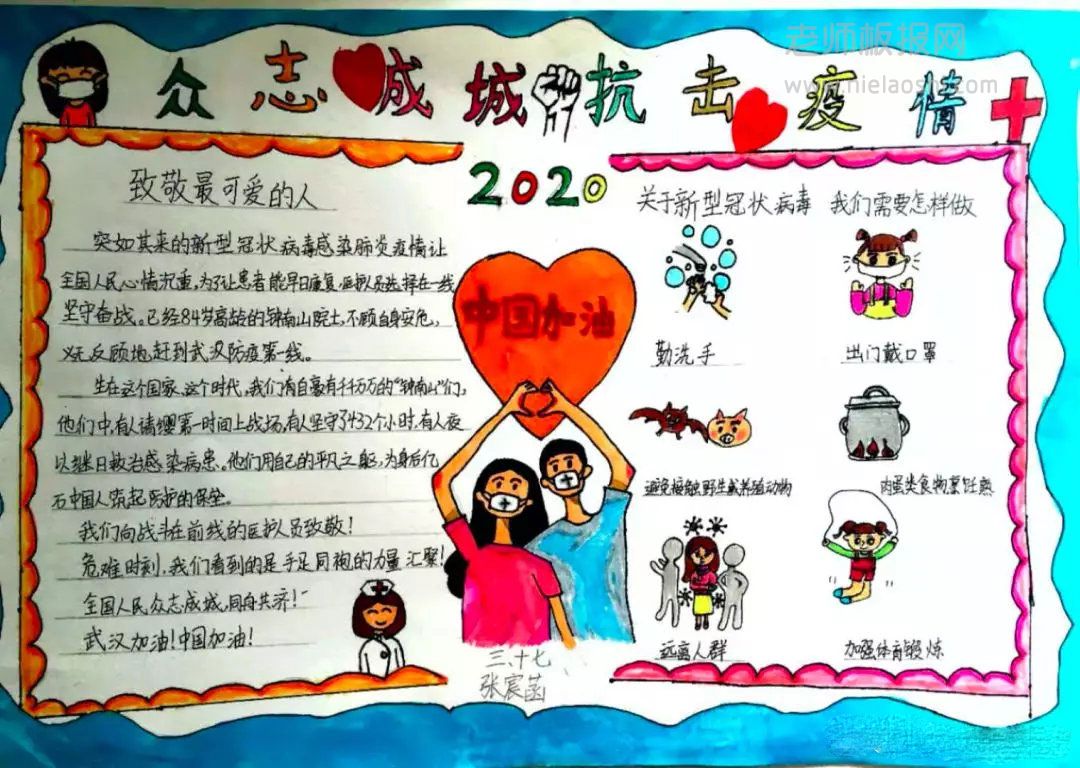 众志成城抗击疫情
老师板报网
2020
致敬最可爱的人
突如其来的新型冠状病毒感染肺炎疫情让
全国人民心情沉重。为了让患者能早日康复,医护人员选择在一线
坚守奋战。已经84岁高龄的钟南山院士,不顾自身安危,
义无反顾地赶到武汉防疫第一线。
生在这个国家、这个时代,我们有自豪有千千万万的“钟南山”们,
他们中,有人请缨第一时间上战场,有人坚守了432个小时,有人夜
以继日救治感染病患。他们用自己的平凡之躯,为身后亿
万中国人筑起防护的保垒。
我们向战斗在前线的医护人员致敬!
危难时刻,我们看到的是手足同袍的力量汇聚!
全国人民众志成城,同舟共济!
武汉加油!中国加油!
中国加油
三、十七
张宸菡
关于新型冠状病毒 我们需要怎样做
勤洗手
出门戴口罩
避免接触野生或养殖动物
肉蛋类食物烹饪熟
远离人群
加强体育锻炼